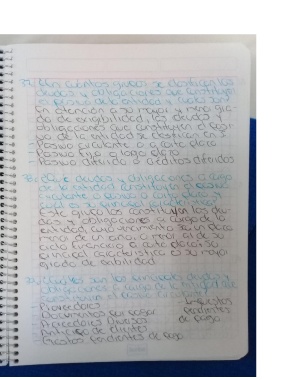 37. ¿En cuántos grupos se clasifican las
deudas y obligaciones que constituyen
el pasivo de la entidad y cuáles son?
En atención a su mayor y menor gra-
do de exigibilidad, las deudas y
obligaciones que constituyen el pasi-
vo de la entidad se clasifican en:
Pasivo circulante o a corto plazo
Pasivo fijo o largo plazo
Pasivo diferido o créditos diferidos
38. deudas y obligaciones a cargo
de la entidad constituyen el pasivo
circulante o pasivo a corto plazo y
cuál es su principal característica?
Este grupo los constituyen las deu-
das y obligaciones a cargo de la
entidad, cuyo vencimiento sea en plazo
menor de un año o menor al de su
ciclo financiero a corto plazo su
principal característica es su mayor
grado de exigibilidad
39. ¿Cuáles son las principales deudas y
obligaciones a cargo de la entidad que
constituyen el pasivo circulante?
- Proveedores
- Impuestos pendientes de pago
- Documentos por pagar
- Acreedores Diversos
- Anticipo de clientes
- Gastos pendientes de pago